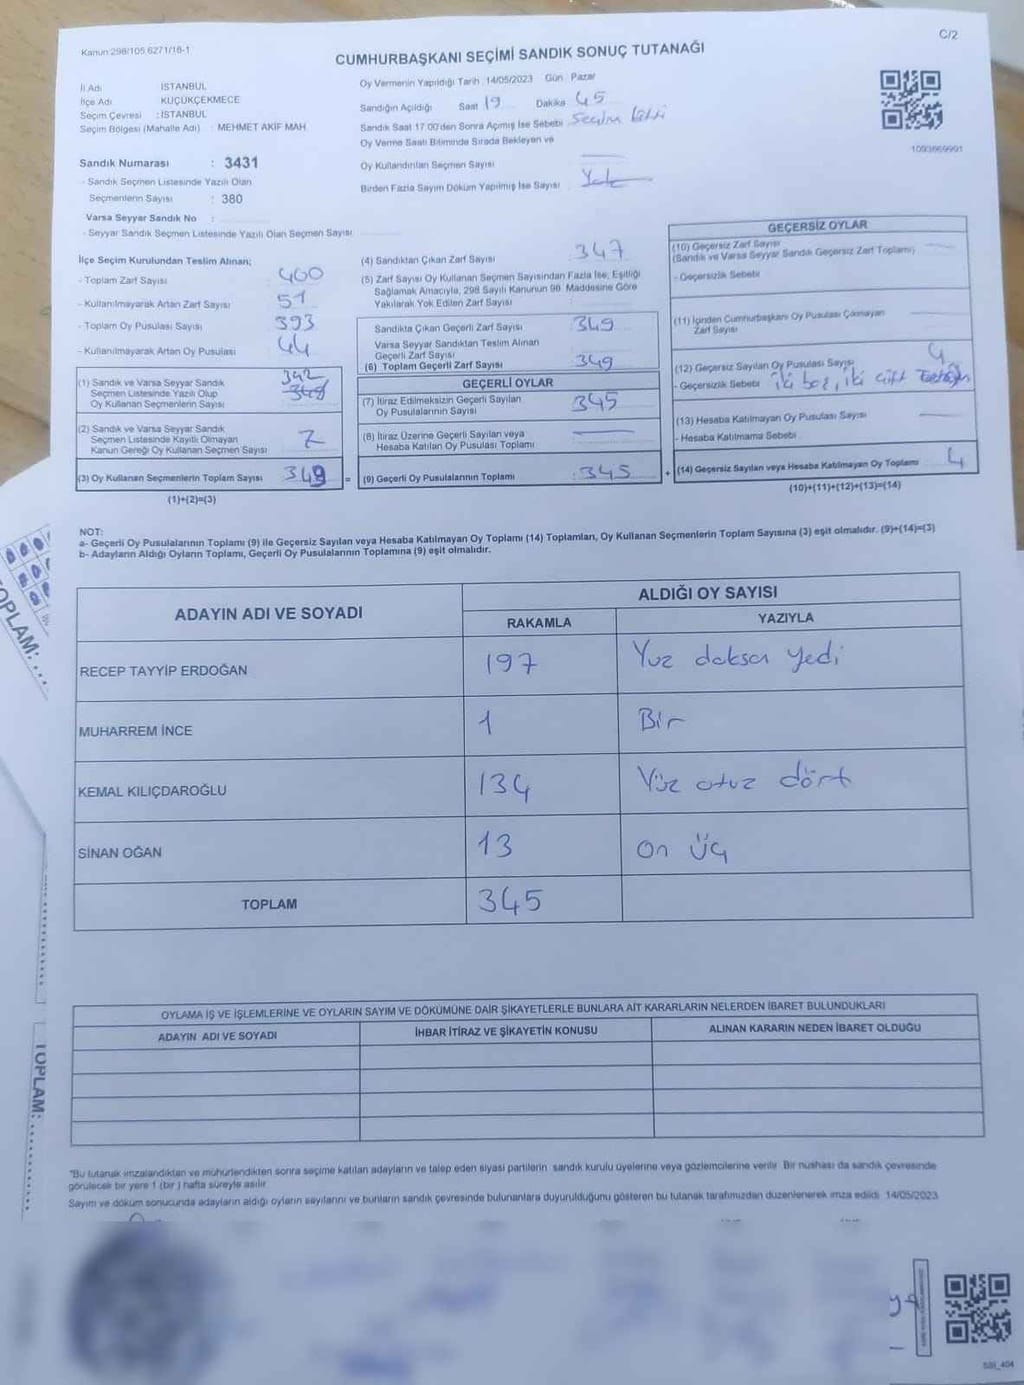 Kanun 298/105.6271/16-1
C/2
CUMHURBAŞKANI SEÇİMİ SANDIK SONUÇ TUTANAĞI
İl Adı İSTANBUL
İlçe Adı KÜÇÜKÇEKMECE
Seçim Çevresi : İSTANBUL
Seçim Bölgesi (Mahalle Adı) : MEHMET AKİF MAH.
Sandık Numarası : 3431
- Sandık Seçmen Listesinde Yazılı Olan
Seçmenlerin Sayısı : 380
Varsa Seyyar Sandık No :
- Seyyar Sandık Seçmen Listesinde Yazılı Olan Seçmen Sayısı
Oy Vermenin Yapıldığı Tarih 14/05/2023 Gün Pazar
Sandığın Açıldığı Saat 19 Dakika 45
Sandık Saat 17:00'den Sonra Açımış İse Sebebi Seçim bitti
Oy Verme Saati Bitiminde Sırada Bekleyen ve
Oy Kullandırılan Seçmen Sayısı
Birden Fazla Sayım Döküm Yapılmış İse Sayısı Yok
1093869991
İlçe Seçim Kurulundan Teslim Alınan;
- Toplam Zarf Sayısı 400
- Kullanılmayarak Artan Zarf Sayısı 51
- Toplam Oy Pusulası Sayısı 393
- Kullanılmayarak Artan Oy Pusulası 44
(1) Sandık ve Varsa Seyyar Sandık
Seçmen Listesinde Yazılı Olup
Oy Kullanan Seçmenlerin Sayısı 342
(2) Sandık ve Varsa Seyyar Sandık
Seçmen Listesinde Kayıtlı Olmayan
Kanun Gereği Oy Kullanan Seçmen Sayısı 7
(3) Oy Kullanan Seçmenlerin Toplam Sayısı 349 =
(1)+(2)=(3)
(4) Sandıktan Çıkan Zarf Sayısı 347
(5) Zarf Sayısı Oy Kullanan Seçmen Sayısından Fazla İse; Eşitliği
Sağlamak Amacıyla, 298 Sayılı Kanunun 98. Maddesine Göre
Yakılarak Yok Edilen Zarf Sayısı
Sandıkta Çıkan Geçerli Zarf Sayısı 349
Varsa Seyyar Sandıktan Teslim Alınan
Geçerli Zarf Sayısı
(6) Toplam Geçerli Zarf Sayısı 349
GEÇERLİ OYLAR
(7) İtiraz Edilmeksizin Geçerli Sayılan
Oy Pusulalarının Sayısı 345
(8) İtiraz Üzerine Geçerli Sayılan veya
Hesaba Katılan Oy Pusulası Toplamı
(9) Geçerli Oy Pusulalarının Toplamı : 345 +
GEÇERSİZ OYLAR
(10) Geçersiz Zarf Sayısı
(Sandık ve Varsa Seyyar Sandık Geçersiz Zarf Toplamı)
- Geçersizlik Sebebi
(11) İçinden Cumhurbaşkanı Oy Pusulası Çıkmayan
Zarf Sayısı
(12) Geçersiz Sayılan Oy Pusulası Sayısı 4
- Geçersizlik Sebebi İki boş, iki çift
(13) Hesaba Katılmayan Oy Pusulası Sayısı
- Hesaba Katılmama Sebebi
(14) Geçersiz Sayılan veya Hesaba Katılmayan Oy Toplamı 4
(10)+(11)+(12)+(13)=(14)
NOT:
a- Geçerli Oy Pusulalarının Toplamı (9) ile Geçersiz Sayılan veya Hesaba Katılmayan Oy Toplamı (14) Toplamları, Oy Kullanan Seçmenlerin Toplam Sayısına (3) eşit olmalıdır. (9)+(14)=(3)
b- Adayların Aldığı Oyların Toplamı, Geçerli Oy Pusulalarının Toplamına (9) eşit olmalıdır.
ADAYIN ADI VE SOYADI ALDIĞI OY SAYISI
RAKAMLA YAZIYLA
RECEP TAYYİP ERDOĞAN 197 Yuz doksan yedi
MUHARREM İNCE 1 Bir
KEMAL KILIÇDAROĞLU 134 Yüz otuz dört
SİNAN OĞAN 13 On üç
TOPLAM 345
OYLAMA İŞ VE İŞLEMLERİNE VE OYLARIN SAYIM VE DÖKÜMÜNE DAİR ŞİKAYETLERLE BUNLARA AİT KARARLARIN NELERDEN İBARET BULUNDUKLARI
ADAYIN ADI VE SOYADI İHBAR İTİRAZ VE ŞİKAYETİN KONUSU ALINAN KARARIN NEDEN İBARET OLDUĞU
"Bu tutanak imzalandıktan ve mühürlendikten sonra seçime katılan adayların ve talep eden siyasi partilerin sandık kurulu üyelerine veya gözlemcilerine verilir. Bir nushası da sandık çevresinde
görülecek bir yere 1 (bir) hafta süreyle asılır.
Sayım ve döküm sonucunda adayların aldığı oyların sayılarını ve bunların sandık çevresinde bulunanlara duyurulduğunu gösteren bu tutanak tarafımızdan düzenlenerek imza edildi. 14/05/2023
TOPLAM:
TOPLAM: